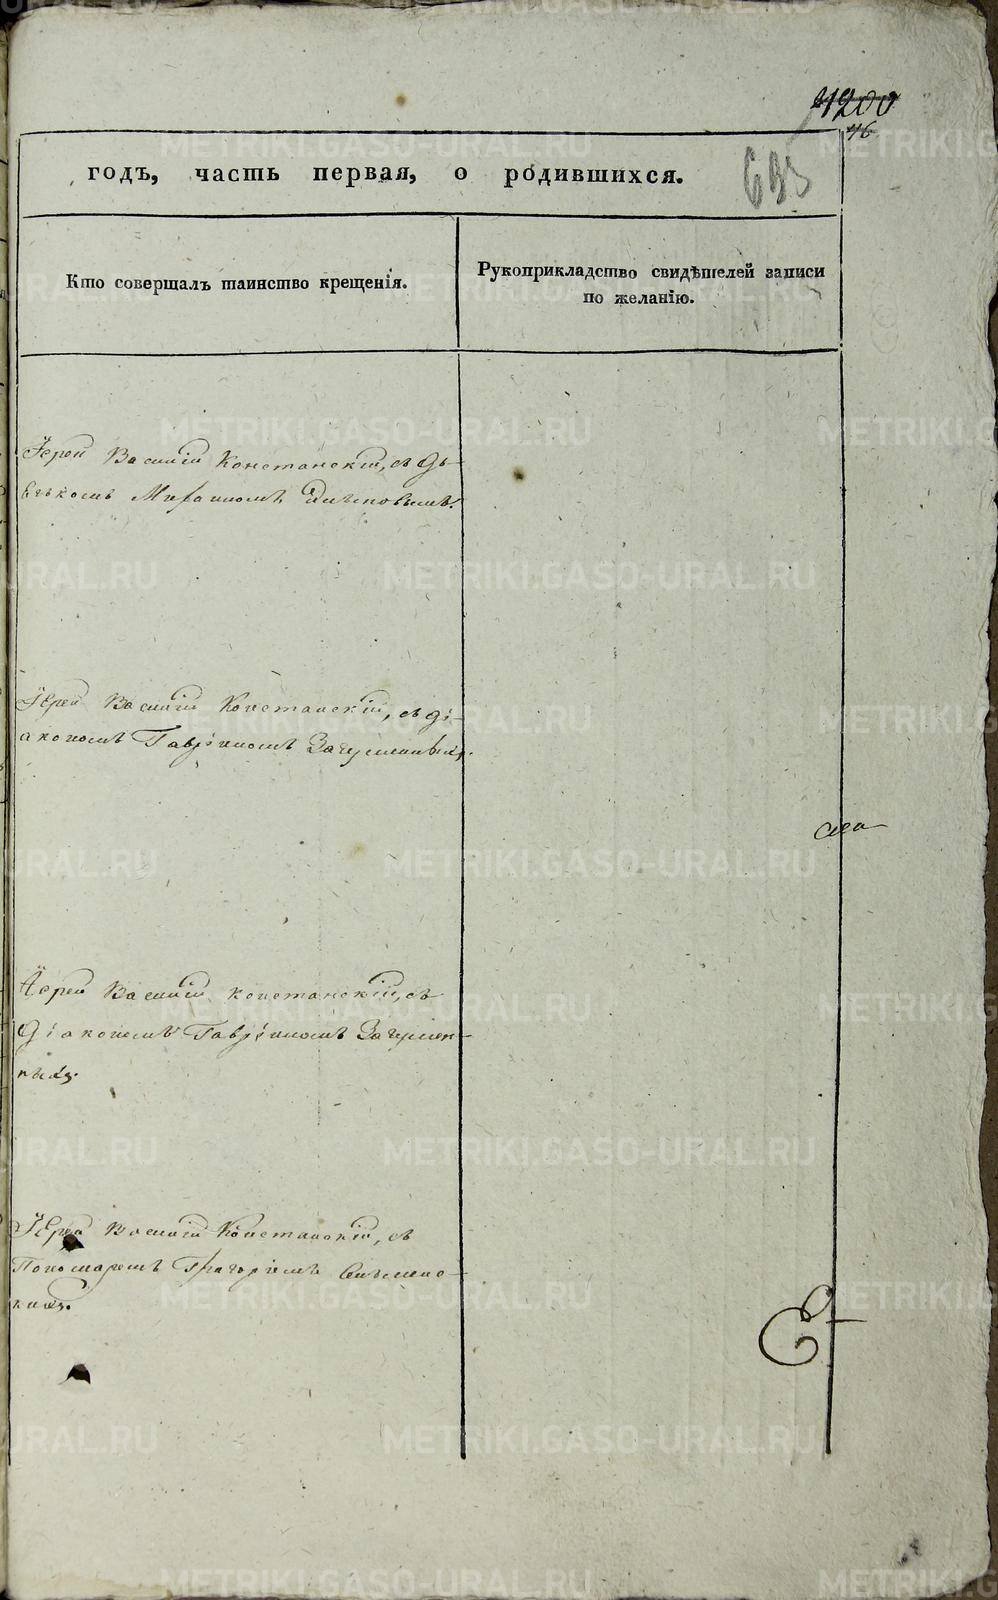 1200
46
годъ, часть первая, о родившихся.
693
Кто совершалъ таинство крещенія.
Рукоприкладство свидѣтелей записи
по желанію.
Іерей Василій Констанскій, съ дь-
Іерей Василій Констанскій, съ ді-
акономъ Гавріиломъ Загуменныхъ.
Іерей Василій Констанскій, съ
Діакономъ Гавріиломъ Загумен-
ныхъ.
Іерей Василій Констанскій, съ
Пономаремъ Григоріемъ
METRIKI.GASO-URAL.RU